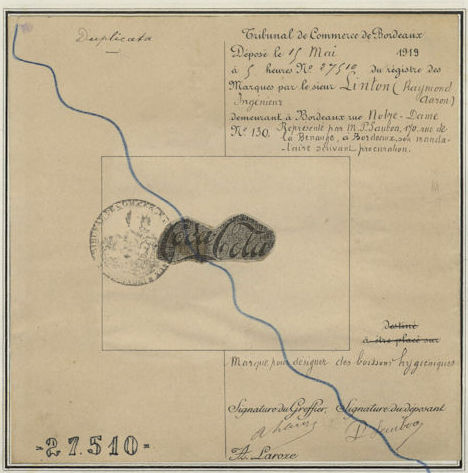 Duplicata
Tribunal de Commerce de Bordeaux
Déposé le 15 Mai 1919
à 5 heures Nº 27510 du régistre des
Marques par le sieur Linton (Raymond
Aaron)
Ingénieur
demeurant à Bordeaux rue Notre-Dame
Nº 130. Représenté par M. P. Sauboa, 170, rue de
la Benauge, à Bordeaux, son manda-
-taire suivant procuration.
Coca Cola
destiné
à être placé sur
Marque pour désigner des boissons hygiéniques
Signature du Greffier, Signature du déposant
A. Laroze
27.510